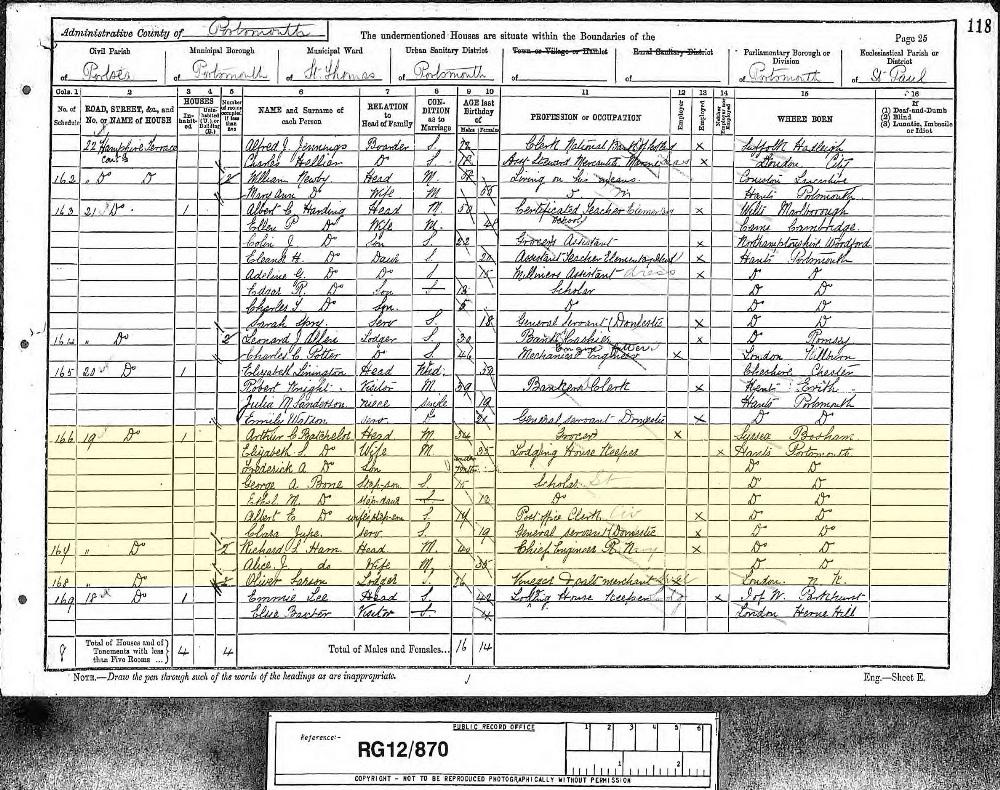 118
Administrative County of Portsmouth The undermentioned Houses are situate within the Boundaries of the Page 25
Civil Parish Municipal Borough Municipal Ward Urban Sanitary District Town or Village or Hamlet Rural Sanitary District Parliamentary Borough or Division Ecclesiastical Parish or District
of Portsea of Portsmouth of St. Thomas of Portsmouth of of of Portsmouth of St Paul
Cols. 1 2 3 4 5 6 7 8 9 10 11 12 13 14 15 16
No. of Schedule ROAD, STREET, &c., and No. or NAME of HOUSE HOUSES Inhabited Uninhabited (U.) or Building (B.) Number of rooms occupied if less than five NAME and Surname of each Person RELATION to Head of Family CONDITION as to Marriage AGE last Birthday of Males Females PROFESSION or OCCUPATION Employer Employed Neither Employer nor Employed WHERE BORN If (1) Deaf-and-Dumb (2) Blind (3) Lunatic, Imbecile or Idiot
22 Hampshire Terrace Alfred J. Jennings Boarder S. Clerk National Bank × Suffolk Hadleigh
Charles Hellier Do S. Mercantile × London City
162 " Do Do 2 William Newby Head M. Living on his means
Mary Ann Do Wife M. Hants Portsmouth
163 21 Do 1 Albert C. Harding Head M. 50 Certificated Teacher Elementary School × Wilts Marlborough
Ellen P. Do Wife M. Cambridge
Colin J. Do Son S. 22 Grocers Assistant × Northamptonshire Woodford
Eleanor H. Do Daur S. Assistant Teacher × Hants Portsmouth
Adeline G. Do Do S. 15 Milliners Assistant dress × Do Do
Edgar R. Do Son 13 Scholar Do Do
Charles L. Do Son 5 Do Do Do
Sarah Serv S. 18 General Servant (Domestic × Do Do
164 " Do 2 Leonard J. Allen Lodger S. 30 Bank Cashier × Do Romsey
Charles C. Potter Do S. 46 Mechanical Engineer × London
165 20 Do 1 Elizabeth Linington Head Wid. Cheshire Chester
Robert Knight Visitor M. 39 Bankers Clerk × Kent Erith
Julia M. Sanderson niece single 19 Hants Portsmouth
Emily Watson serv Do 21 General servant Domestic × Do Do
166 19 Do 1 Arthur C. Batchelor Head M. 34 Grocer × Sussex Bosham
Elizabeth S. Do Wife M. 35 Lodging House Keeper × Hants Portsmouth
Frederick A. Do Son under Do Do
George A. Bone Step-son S. 15 Scholar Do Do
Ethel M. Do Step-daur 12 Do Do Do
Albert E. Do wife's step-son S. 19 Post office Clerk × Do Do
Clara serv. S. 19 General servant (Domestic × Do Do
167 " Do 2 Richard L. Ham Head M. 40 Chief Engineer R.N. × Do Do
Alice J. do Wife M. 35 Do Do
168 " Do 2 Oliver Lodger S. 26 merchant London N.W.
169 18 Do 1 Emmie Lee Head S. 42 Lodging House Keeper × I of W. Parkhurst
Elsie Baxter Visitor London Herne Hill
8 Total of Houses and of Tenements with less than Five Rooms ...} 4 4 Total of Males and Females... 16 14
NOTE.—Draw the pen through such of the words of the headings as are inappropriate. Eng.—Sheet E.
PUBLIC RECORD OFFICE 1 2 3 4 5 6
Reference:-
RG12/870
1 2
COPYRIGHT - NOT TO BE REPRODUCED PHOTOGRAPHICALLY WITHOUT PERMISSION